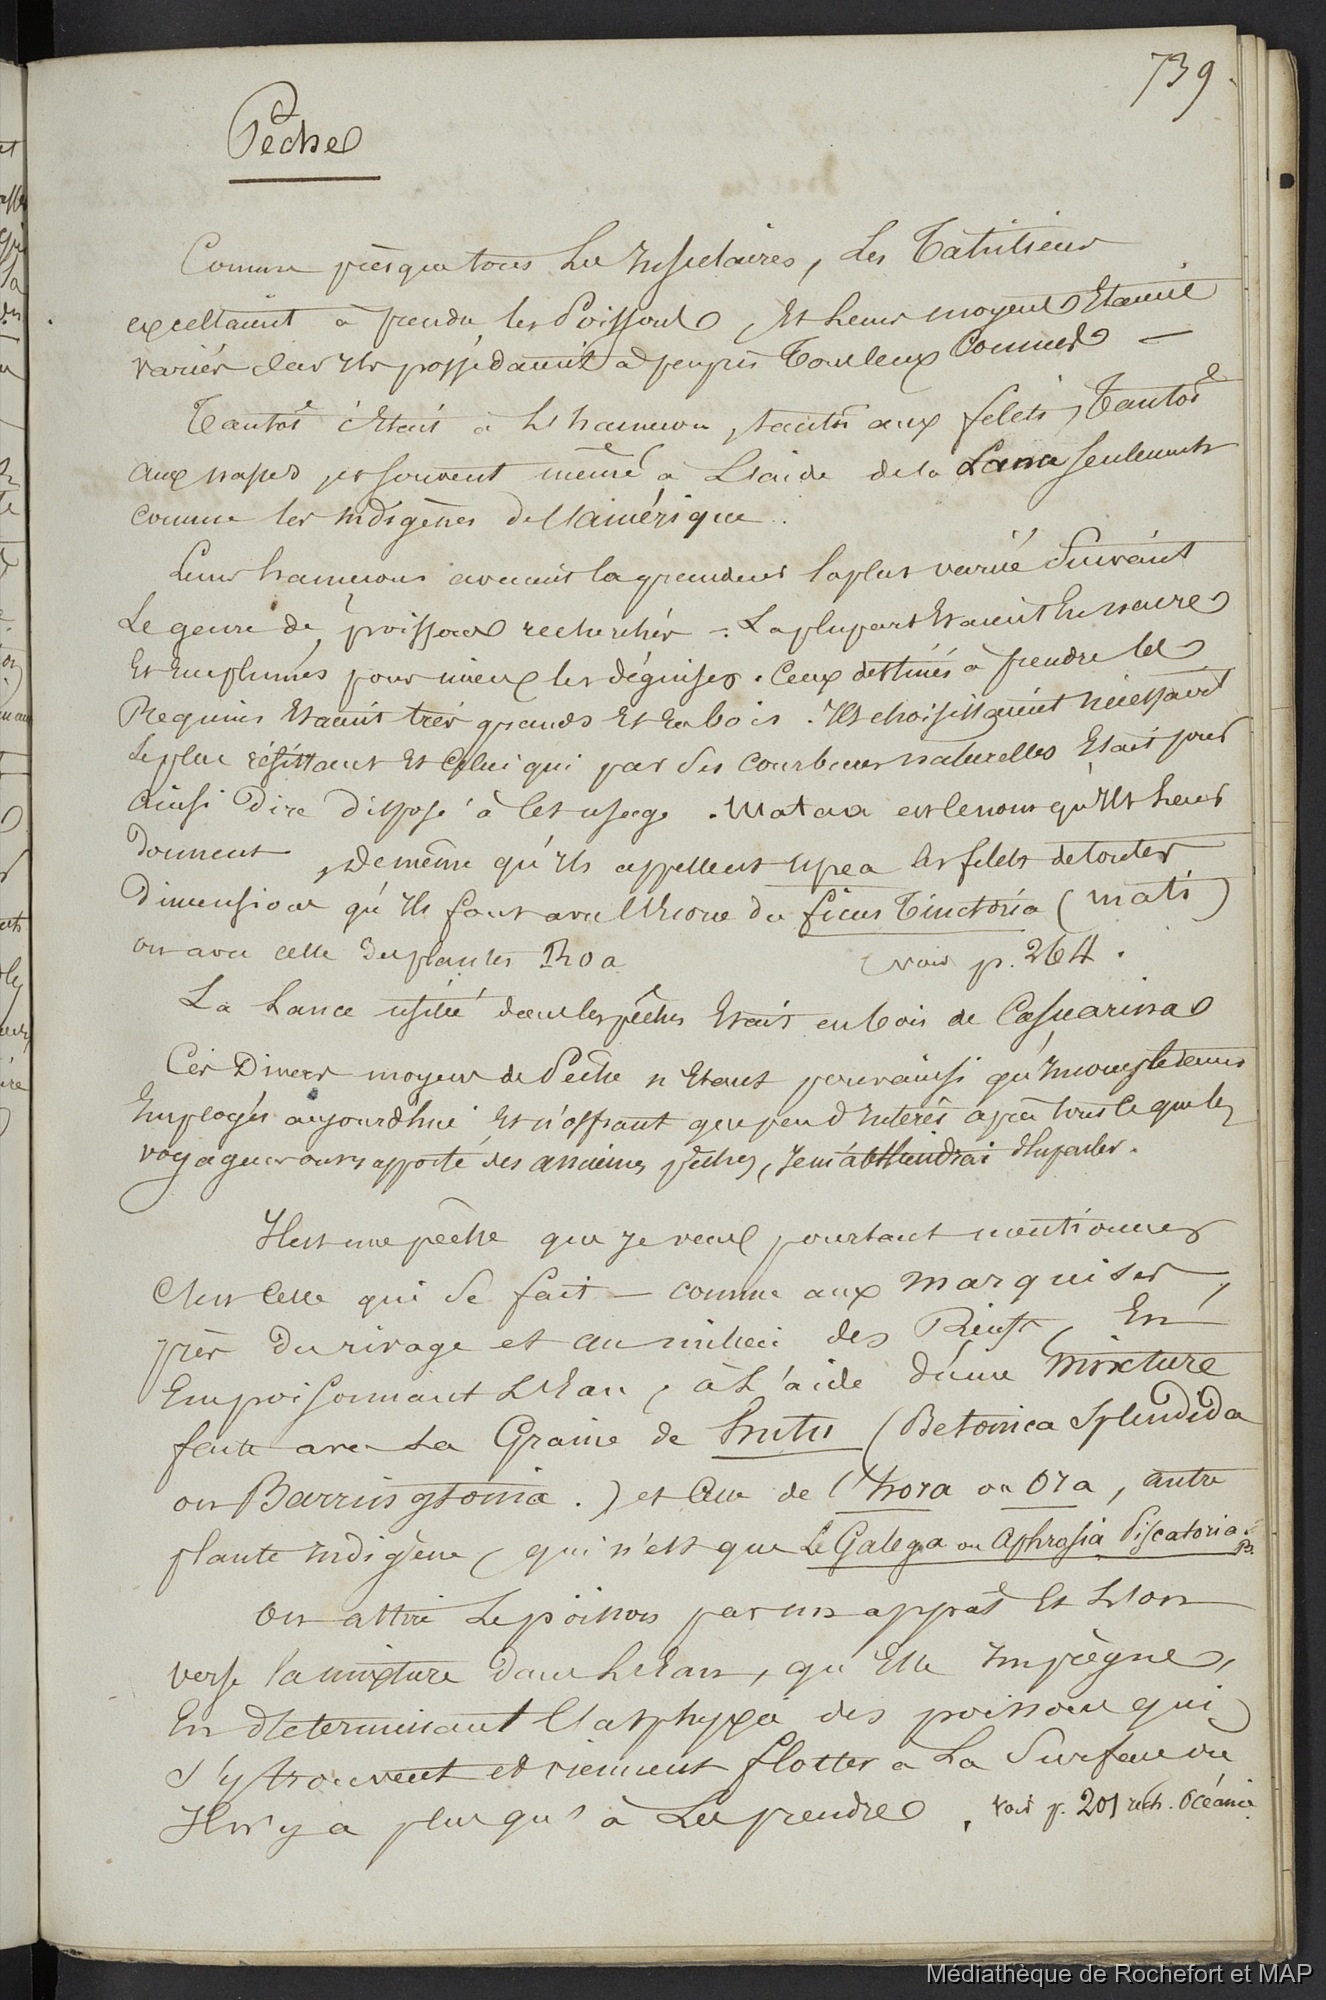 739.
Pêche
Comme presque tous les Insulaires, les Tahitiens
excellaient à prendre les Poissons, et leurs moyens étaient
variés car ils possédaient à peu près tous ceux connus —
Tantôt c'était à l'hameçon, tantôt aux filets, tantôt
aux nasses, et souvent même à l'aide de la Lance seulement
comme les indigènes de l'amérique.
Leurs hameçons avaient la grandeur la plus variée suivant
le genre de poissons recherchés. La plupart étaient en nacre
et emplumés pour mieux les déguiser. Ceux destinés à prendre les
Requins étaient très grands et en bois. Ils choisissaient
le plus résistant et celui qui par ses courbures naturelles était pour
ainsi dire disposé à cet usage. Matau est le nom qu'ils leur
donnent, de même qu'ils appellent upea les filets de toutes
dimensions qu'ils font avec l'écorce du ficus Tinctoria (mati)
ou avec celle des plantes Roa (voir p. 264.
La lance usitée dans les pêches était en bois de Casuarina
Ces Divers moyens de Pêche n'étant pour ainsi qu'incomplètement
Employés aujourd'hui et n'offrant que peu d'intérêt après tout ce que les
voyageurs ont rapporté des anciennes pêches, je m'abstiendrai d'en parler.
Il est une pêche que je veux pourtant mentionner
c'est celle qui se fait — comme aux Marquises,
près du rivage et au milieu des Récifs, En
Empoisonnant l'eau, à l'aide d'une mixture
faite avec la Graine de hutu (Betonica Splendida
ou Barringtonia.) et celle de l'hora ou Ora, autre
plante indigène (qui n'est que le Galega ou Aphrosia Piscatoria
On attire le poisson par un appât et l'on
verse la mixture dans l'eau, qu'elle imprègne,
en déterminant l'asphyxie des poissons qui
s'y trouvent et viennent flotter à la Surface où
Il n'y a plus qu'à les prendre. voir p. 201 rech. Océanie.
Médiathèque de Rochefort et MAP